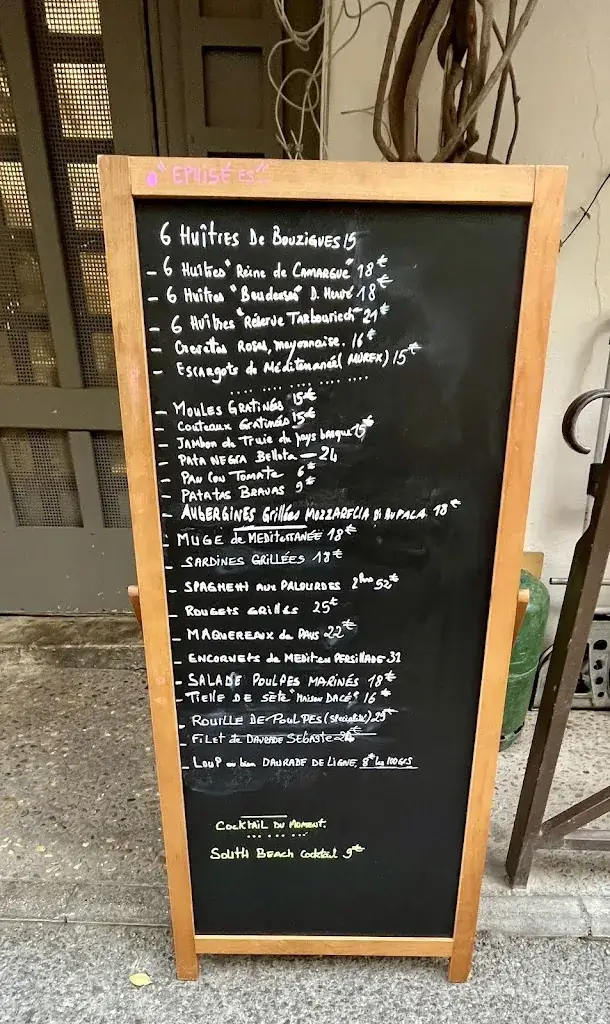 "EPUISÉ ES"
6 Huîtres De Bouzigues 15
- 6 Huîtres "Reine de CAMARGUE" 18€
- 6 Huîtres "Boudeuse" D. Hervé 18€
- 6 Huîtres "Réserve Tarbouriech" 21€
- Crevettes Roses, mayonnaise. 16€
- Escargots de Méditerranée( MUREX) 15€
- MOULES GRATINÉES 15€
- Couteaux Gratinés 15€
- Jambon de Truie du pays basque 15€
- PATA NEGRA Bellota — 24
- PAN CON TOMATE 6€
- PATATAS BRAVAS 9€
- AUBERGINES Grillées MOZZARELLA DI BUFALA 18€
- MUGE de MEDITERRANÉE 18€
- SARDINES GRILLÉES 18€
- SPAGHETTI aux PALOURDES 2 Pers 52€
- ROUGETS GRILLÉS 25€
- MAQUEREAUX de PAYS 22€
- ENCORNETS de MEDITEN PERSILLADE 31
- SALADE POULPES MARINÉS 18€
- TIELLE DE SÈTE "Maison DACÉ" 16€
- ROUILLE DE POULPES (Spécialité) 25€
- FILET de DAURADE SEBASTE
- LOUP ou bien DAURADE DE LIGNE, 8€ les 100GRS
COCKTAIL DU MOMENT.
SOUTH BEACH Cocktail 9€